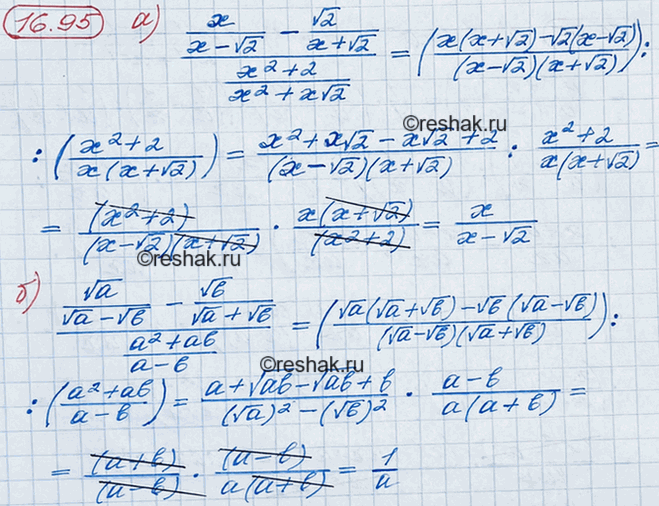 16.95 а) (x/(x-√2) - √2/(x+√2))/((x²+2)/(x²+x√2)) = ((x(x+√2)-√2(x-√2))/((x-√2)(x+√2))):
©reshak.ru
:((x²+2)/(x(x+√2))) = (x²+x√2-x√2+2)/((x-√2)(x+√2)) : (x²+2)/(x(x+√2)) =
= (x²+2)/((x-√2)(x+√2)) · x(x+√2)/(x²+2) = x/(x-√2)
©reshak.ru
б) (√a/(√a-√b) - √b/(√a+√b))/((a²+ab)/(a-b)) = ((√a(√a+√b)-√b(√a-√b))/((√a-√b)(√a+√b))):
©reshak.ru
:((a²+ab)/(a-b)) = (a+√ab-√ab+b)/((√a)²-(√b)²) · (a-b)/(a(a+b)) =
= (a+b)/(a-b) · (a-b)/(a(a+b)) = 1/a
©reshak.ru